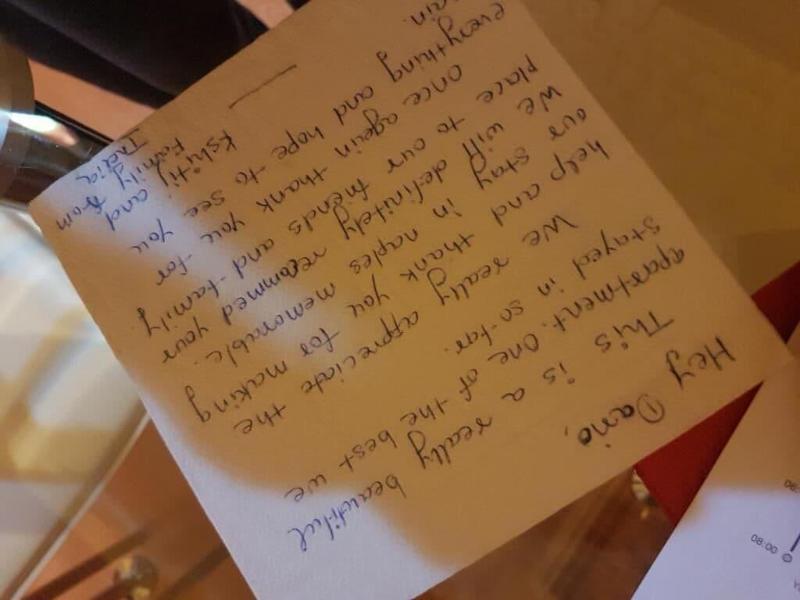 Hey Dario,
This is a really beautiful
apartment. One of the best we
stayed in so-far.
We really appreciate the
help and thank you for making
our stay in naples memorable.
We will definitely recommed your
place to our friends and family
once again thank you for
everything and hope to see you
ain.
Kshitij and
Family from
India
08:00